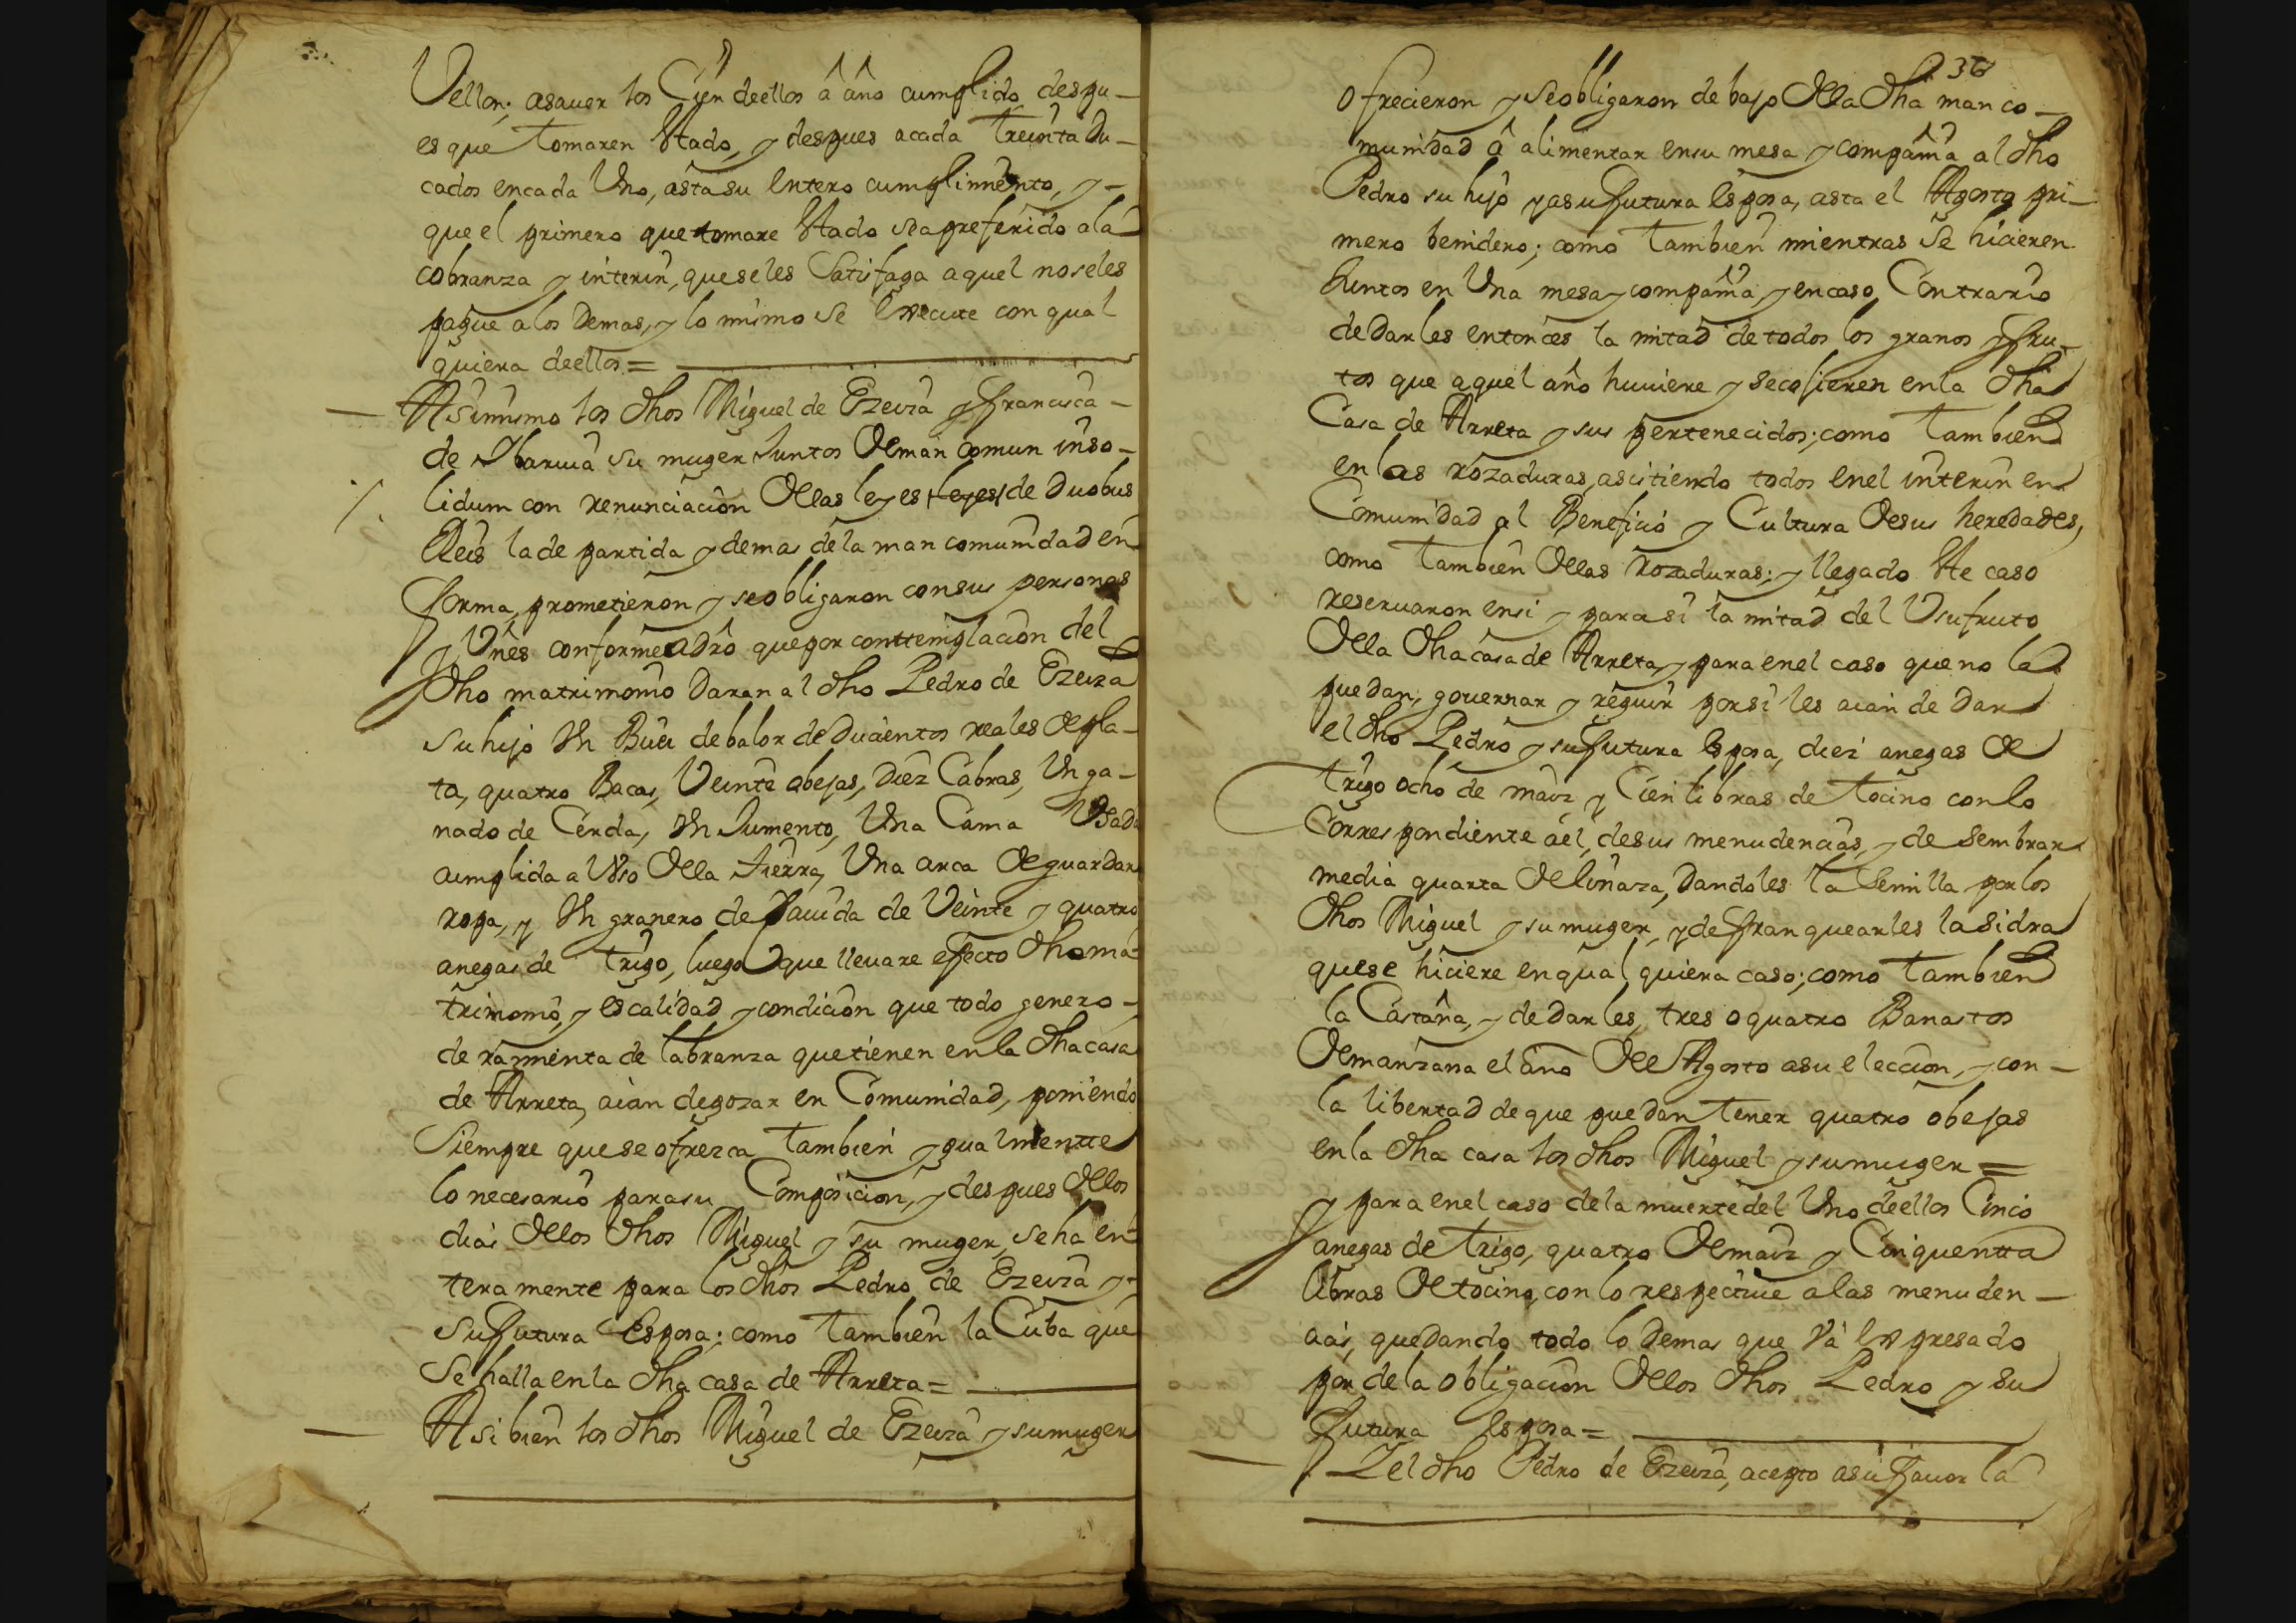 Vellon; asauer los Cien deellos â año cumplido despu-
es que tomaren Estado, y despues acada treinta Du-
cados encada Uno, asta su entero cumplimiento, y-
que el primero que tomare Estado sea preferido ala
cobranza y interin, queseles Satisfaga aquel noseles
pague alos Demas, y lo mismo se execute con qual
quiera deellos =
Asimismo los dhos Miguel de Ezeiza y francisca-
de Ybarvia su muger Juntos Deman comun inso-
lidum con renunciacion Dellas leyes leyes de Duobus
Reis lade partida y demas dela man comunidad en
forma, prometieron y seobligaron consus personas
y Vnes conforme adro quepor conttemplacion del
Dho matrimonio Daran al dho Pedro de Ezeiza
su hijo Un Buei debalor de Ducientos reales depla-
ta, quatro Bacas, Veinte obejas, Diez Cabras, Un ga-
nado de Cerda, Un Jumento, Una Cama Usada
cumplida a Uso Della tierra, Una arca De guardar
ropa, y Un granero de Cauida de Veinte y quatro
anegas de trigo, luego que lleuare efecto dho ma
trimonio, y es calidad y condicion que todo genero-
de rarmienta de labranza quetienen en la dha casa
de Arreta, aian degozar en Comunidad, poniendo
Siempre que se ofrezca tambien ygualmentte
lo necesario parasu Composicion, y despues Dellos
dias Dellos dhos Miguel y su muger, se ha en
tera mente para los dhos Pedro de Ezeiza y-
Su futura Esposa; como tambien la Cuba que
Se halla en la dha casa de Arreta =
Asi bien los dhos Miguel de Ezeiza y sumuger
36
ofrecieron y seobligaron de bajo Della dha man co-
munidad â alimentar ensu mesa y compañia al dho
Pedro su hijo y asu futura esposa, asta el Agosto pri-
mero benidero; como tambien mientras se hicieren
Juntos en Una mesa y compañia, y encaso Contrario
de Darles entonces la mitad de todos los granos y fru-
tos que aquel año huuiere y secojieren enla dha
Casa de Arreta y sus pertenecidos; como tambien
en las rozaduras, ascitiendo todos enel interin en
Comunidad al Beneficio y Cultura Desus heredades,
como tambien Dellas rozaduras; y llegado Ste caso
reseruaron ensi y para si la mitad del Usufruto
Della dha casa de Arreta, y para enel caso que no la
puedan, gouernar y reguir por si les aian de Dar
el dho Pedro y su futura esposa, diez anegas De
trigo ocho de maiz y Cien libras de tocino con lo
Correspondiente âel, desus menudencias, y de Sembrar
media quarta De linaza, Dandoles la Semilla por los
dhos Miguel y su muger, y de franquearles la Sidra
que se hiciere en qual quiera caso; como tambien
la Castaña, y de Darles, tres o quatro Banastos
De manzana el año De Agosto asu eleccion, y con-
la libertad de que puedan tener quatro obejas
en la dha casa los dhos Miguel y sumuger =
y para enel caso dela muerte del Uno deellos Cinco
anegas de trigo, quatro De maiz y Cinquentta
libras De tocino, con lo respectiue a las menuden-
cias, quedando todo lo Demas que Vâ expresado
por dela obligacion Dellos dhos Pedro y su
futura esposa =
Y el dho Pedro de Ezeiza, acepto asu fauor la